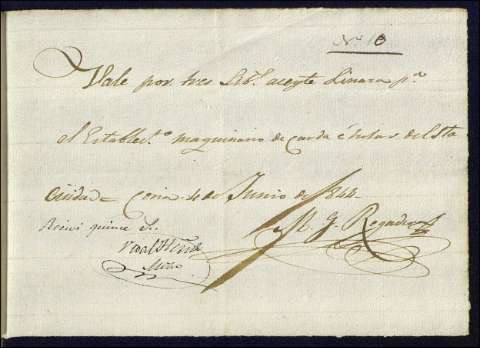 Nº 10
Vale por tres Lib.s aceyte Linaza p.a
el Establec.to maquinario de carda é hilar del Sta
Ciudad = Coria 4 de Junio de 1844
Recivi quince r.s
M. J. Regadera